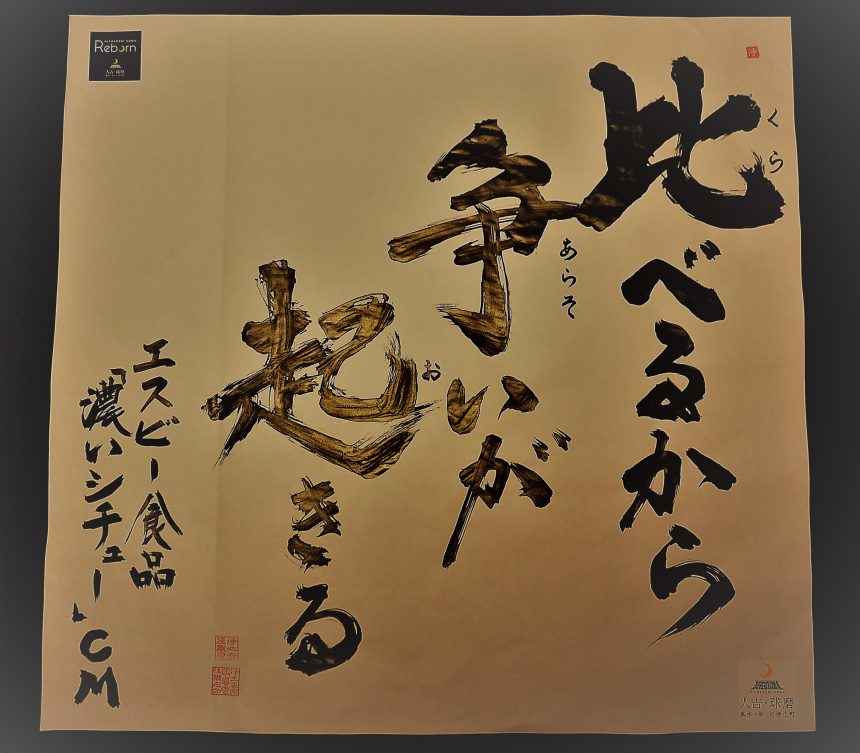 比べるから
くら
争いが
あらそ
起きる
お
エスビー食品
「濃いシチュー」CM
Reborn
人吉・球磨
人吉・球磨